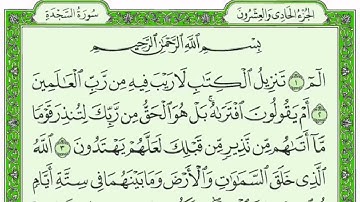 الجزء الحادي والعشرون
سورة السجدة
بِسْمِ ٱللَّهِ ٱلرَّحْمَٰنِ ٱلرَّحِيمِ
الٓمٓ ١ تَنزِيلُ ٱلْكِتَٰبِ لَا رَيْبَ فِيهِ مِن رَّبِّ ٱلْعَٰلَمِينَ
٢ أَمْ يَقُولُونَ ٱفْتَرَىٰهُ ۚ بَلْ هُوَ ٱلْحَقُّ مِن رَّبِّكَ لِتُنذِرَ قَوْمًا
مَّآ أَتَىٰهُم مِّن نَّذِيرٍ مِّن قَبْلِكَ لَعَلَّهُمْ يَهْتَدُونَ ٣ ٱللَّهُ
ٱلَّذِى خَلَقَ ٱلسَّمَٰوَٰتِ وَٱلْأَرْضَ وَمَا بَيْنَهُمَا فِى سِتَّةِ أَيَّامٍ